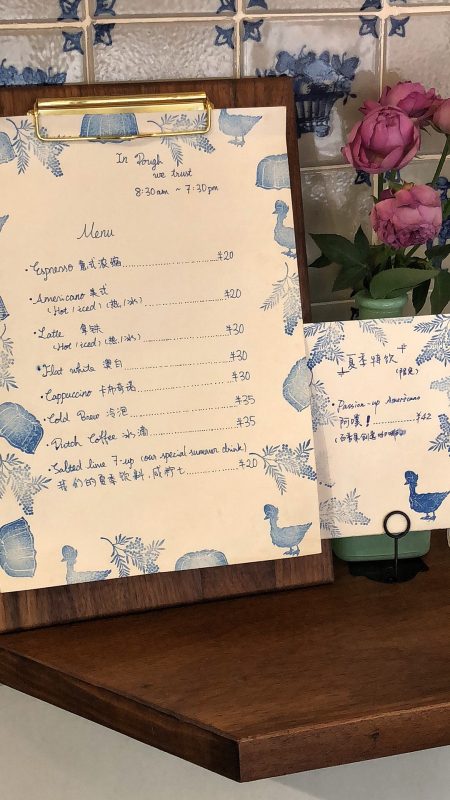 In Dough
we trust
8:30am ~ 7:30pm
Menu
·Espresso 意式浓缩..........¥20
·Americano 美式..........¥20
(Hot / iced) (热/冰)
·Latte 拿铁..........¥30
(Hot / iced) (热/冰)
·Flat white 澳白..........¥30
·Cappuccino 卡布奇诺..........¥30
·Cold Brew 冷泡..........¥35
·Dutch Coffee 冰滴..........¥35
·Salted lime 7-up (our special summer drink)
我们的夏季饮料,咸柠七..........¥20
夏季特饮
(限定)
·Passion-up Americano
阿噗!..........¥42